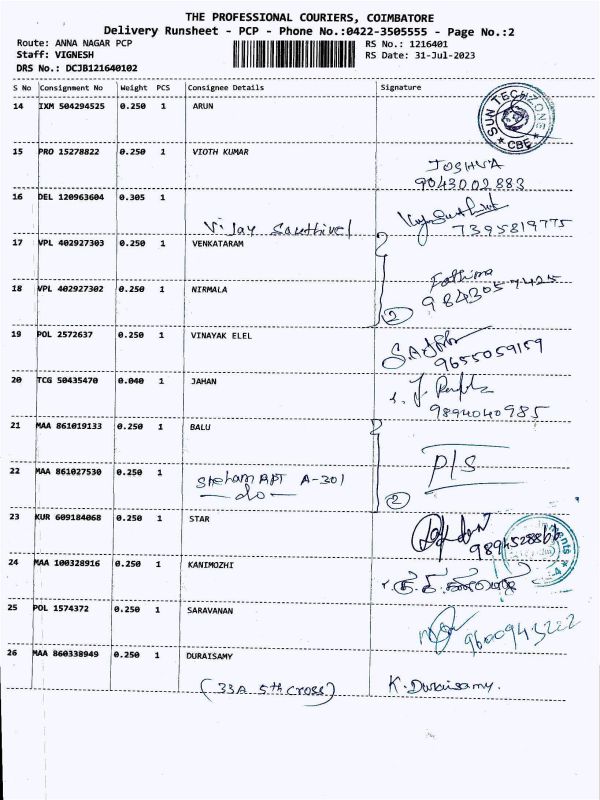 THE PROFESSIONAL COURIERS, COIMBATORE
Delivery Runsheet - PCP - Phone No.:0422-3505555 - Page No.:2
Route: ANNA NAGAR PCP RS No.: 1216401
Staff: VIGNESH RS Date: 31-Jul-2023
DRS No.: DCJB121640102
S No Consignment No Weight PCS Consignee Details Signature
14 IXM 504294525 0.250 1 ARUN
SUN TECHZONE
* CBE *
15 PRO 15278822 0.250 1 VIOTH KUMAR
JOSHUA
9043002883
16 DEL 120963604 0.305 1
Vijay Sauthivel
7395819775
17 VPL 402927303 0.250 1 VENKATARAM
18 VPL 402927302 0.250 1 NIRMALA
Fathima
9843057425
2
19 POL 2572637 0.250 1 VINAYAK ELEL
9655059159
20 TCG 50435470 0.040 1 JAHAN
9894040985
21 MAA 861019133 0.250 1 BALU
P/S
22 MAA 861027530 0.250 1
APT A-301
— do —
2
23 KUR 609184068 0.250 1 STAR
24 MAA 100328916 0.250 1 KANIMOZHI
25 POL 1574372 0.250 1 SARAVANAN
9600943222
26 MAA 860338949 0.250 1 DURAISAMY
(33A 5th cross) K. Duraisamy.